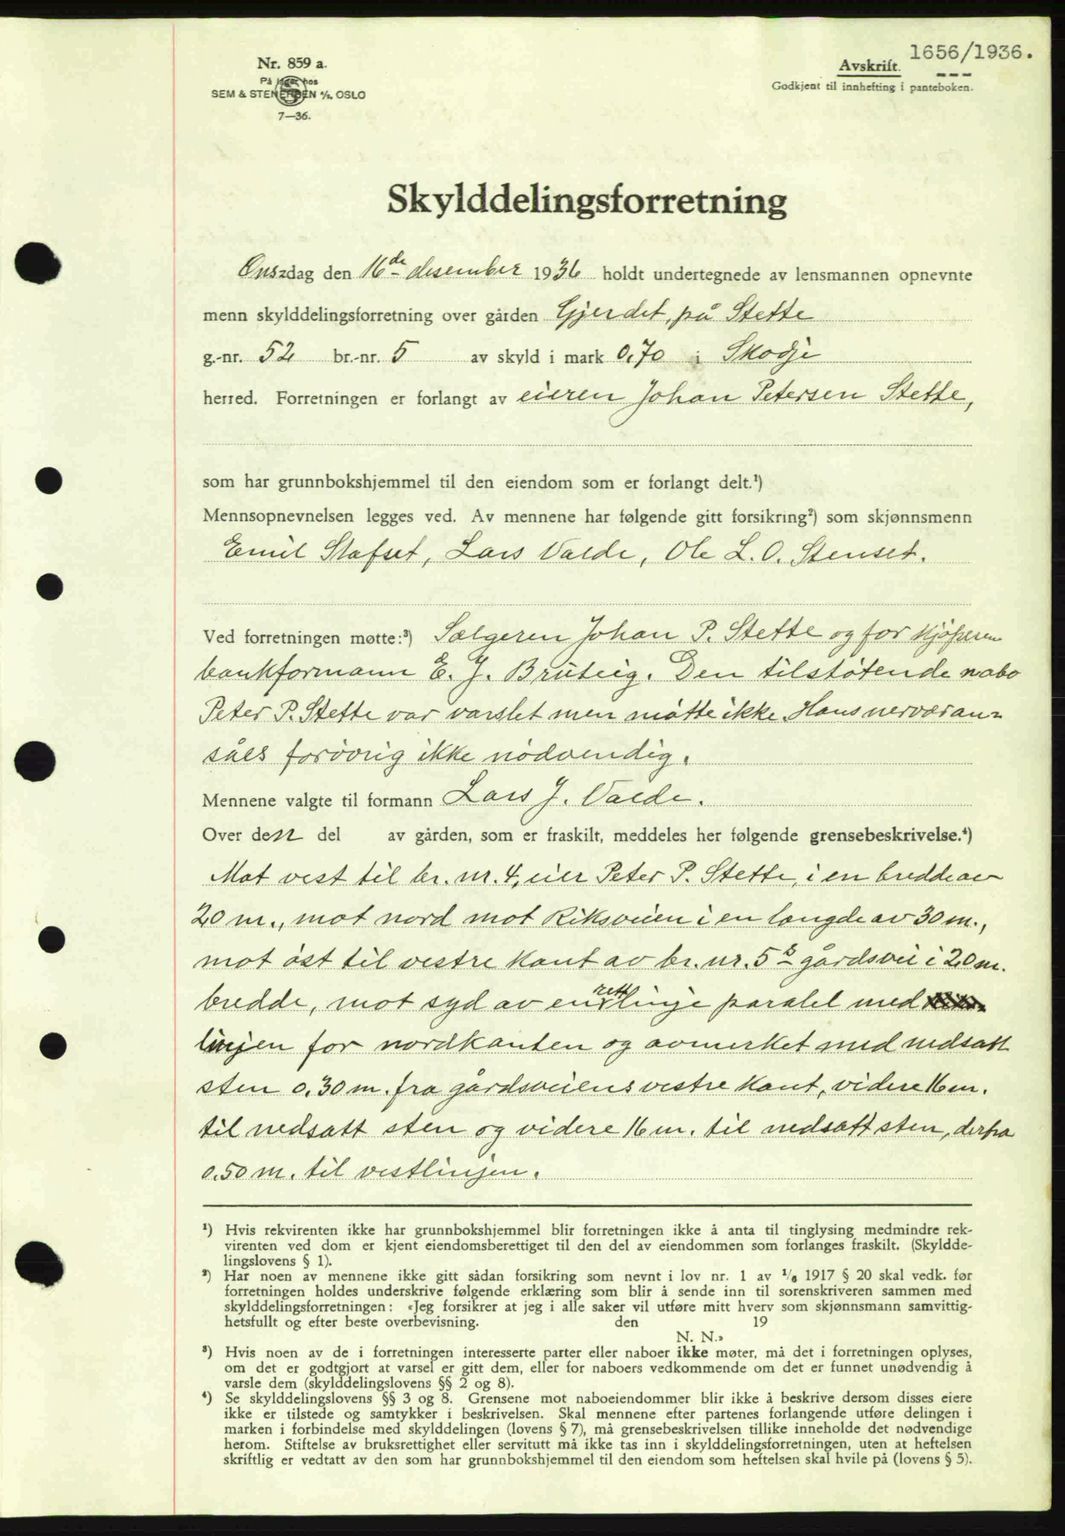 1656/1936.
Nr. 859 a.
På lager hos
SEM & STENERSEN A/S, OSLO
7—36.
Avskrift.
Godkjent til innhefting i panteboken.
Skylddelingsforretning
Onsdag den 16de desember 1936 holdt undertegnede av lensmannen opnevnte
menn skylddelingsforretning over gården Gjerdet, på Stette
g.-nr. 52 br.-nr. 5 av skyld i mark 0,70 i Skodje
herred. Forretningen er forlangt av eieren Johan Petersen Stette,
som har grunnbokshjemmel til den eiendom som er forlangt delt.¹)
Mennsopnevnelsen legges ved. Av mennene har følgende gitt forsikring²) som skjønnsmenn
Emil Slafset, Lars Valde, Ole L. O. Stenset.
Ved forretningen møtte:³) Selgeren Johan P. Stette og for kjøperen
bankformann E. J. Bruteig. Den tilstøtende nabo
Peter P. Stette var varslet men møtte ikke. Hans nerværan-
såes forøvrig ikke nødvendig.
Mennene valgte til formann Lars J. Valde.
Over den del av gården, som er fraskilt, meddeles her følgende grensebeskrivelse.⁴)
Mot vest til br. nr. 4, eier Peter P. Stette, i en bredde av
20 m., mot nord mot Riksveien i en længde av 30 m.,
mot øst til vestre kant av br. nr. 5s gårdsvei i 20 m.
bredde, mot syd av en rett linje paralel med
linjen for nordkanten og avmerket med nedsatt
sten 0,30 m. fra gårdsveiens vestre kant, videre 16 m.
til nedsatt sten og videre 16 m. til nedsatt sten, derfra
0.50 m. til vestlinjen.
¹) Hvis rekvirenten ikke har grunnbokshjemmel blir forretningen ikke å anta til tinglysing medmindre rek-
virenten ved dom er kjent eiendomsberettiget til den del av eiendommen som forlanges fraskilt. (Skyldde-
lingslovens § 1).
²) Har noen av mennene ikke gitt sådan forsikring som nevnt i lov nr. 1 av 1/6 1917 § 20 skal vedk. før
forretningen holdes underskrive følgende erklæring som blir å sende inn til sorenskriveren sammen med
skylddelingsforretningen: «Jeg forsikrer at jeg i alle saker vil utføre mitt hverv som skjønnsmann samvittig-
hetsfullt og efter beste overbevisning. den 19
N. N.»
³) Hvis noen av de i forretningen interesserte parter eller naboer ikke møter, må det i forretningen oplyses,
om det er godtgjort at varsel er gitt dem, eller for naboers vedkommende om det er funnet unødvendig å
varsle dem (skylddelingslovens §§ 2 og 8).
⁴) Se skylddelingslovens §§ 3 og 8. Grensene mot naboeiendommer blir ikke å beskrive dersom disses eiere
ikke er tilstede og samtykker i beskrivelsen. Skal mennene efter partenes forlangende utføre delingen i
marken i forbindelse med skylddelingen (lovens § 7), må grensebeskrivelsen tillike inneholde det nødvendige
herom. Stiftelse av bruksrettighet eller servitutt må ikke tas inn i skylddelingsforretningen, uten at heftelsen
skriftlig er vedtatt av den som har grunnbokshjemmel til den eiendom som heftelsen skal hvile på (lovens § 5).